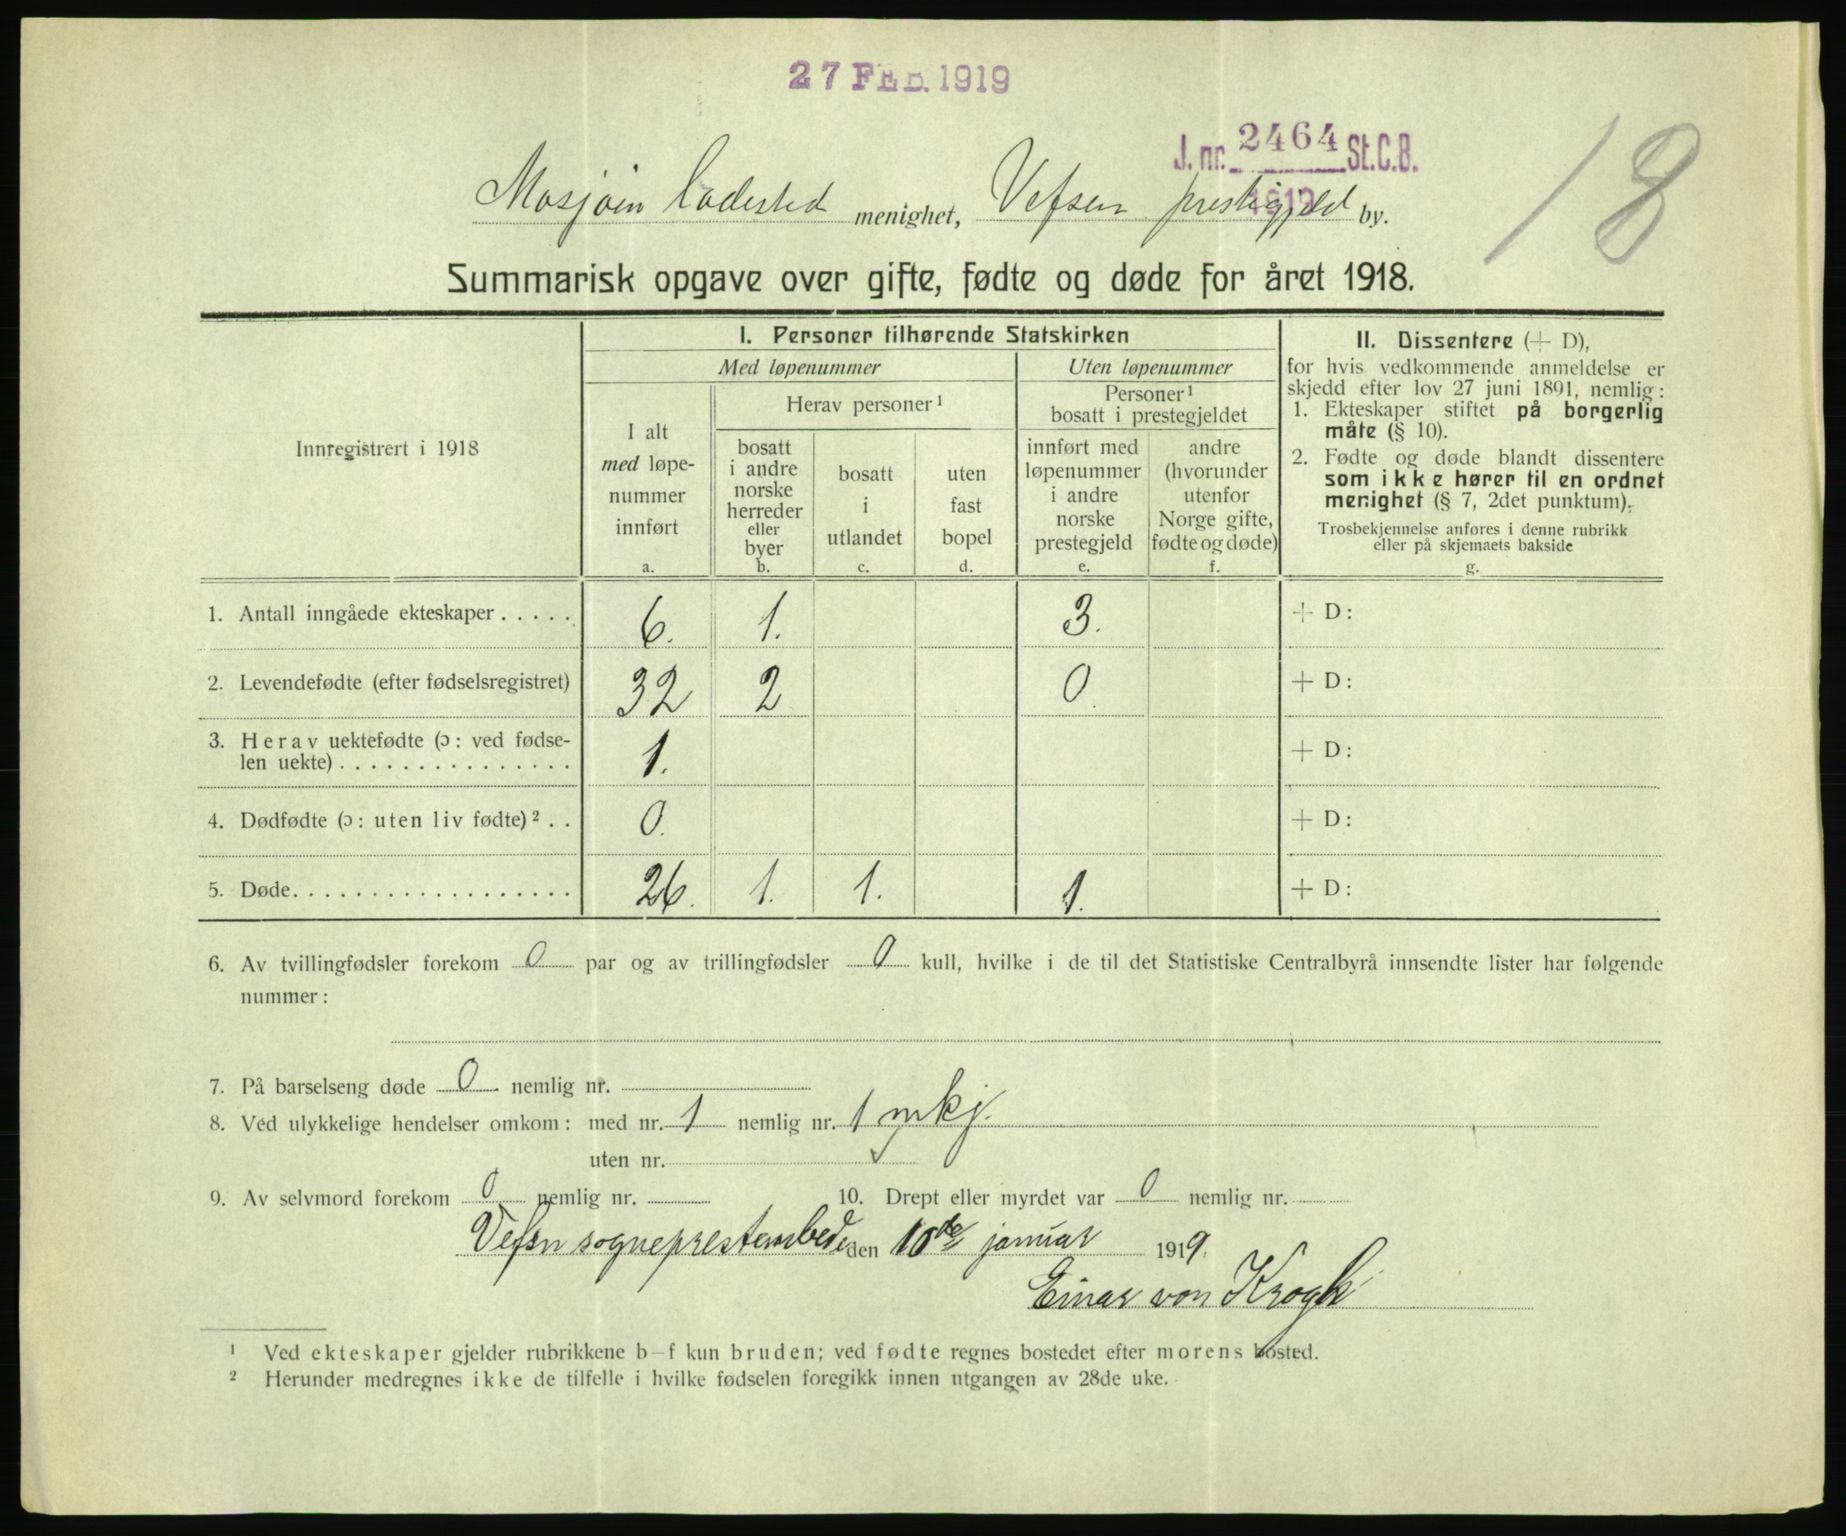 27 FEB. 1919
J. nr. 2464 St.C.B.
1919
18
Mosjøen ladested menighet, Vefsen prestegjeld by.
Summarisk opgave over gifte, fødte og døde for året 1918.
Innregistrert i 1918
I. Personer tilhørende Statskirken
Med løpenummer
Uten løpenummer
I alt
med løpe-
nummer
innført
a.
Herav personer¹
bosatt
i andre
norske
herreder
eller
byer
b.
bosatt
i
utlandet
c.
uten
fast
bopel
d.
Personer¹
bosatt i prestegjeldet
innført med
løpenummer
i andre
norske
prestegjeld
e.
andre
(hvorunder
utenfor
Norge gifte,
fødte og døde)
f.
II. Dissentere (+ D),
for hvis vedkommende anmeldelse er
skjedd efter lov 27 juni 1891, nemlig:
1. Ekteskaper stiftet på borgerlig
måte (§ 10).
2. Fødte og døde blandt dissentere
som ikke hører til en ordnet
menighet (§ 7, 2det punktum).
Trosbekjennelse anføres i denne rubrikk
eller på skjemaets bakside
g.
1. Antall inngåede ekteskaper ..... 6. 1. 3. + D:
2. Levendefødte (efter fødselsregistret) 32 2 0 + D:
3. Herav uektefødte (ɔ: ved fødse-
len uekte) ............... 1. + D:
4. Dødfødte (ɔ: uten liv fødte)² .. 0. + D:
5. Døde.................. 26. 1. 1. 1. + D:
6. Av tvillingfødsler forekom 0 par og av trillingfødsler 0 kull, hvilke i de til det Statistiske Centralbyrå innsendte lister har følgende
nummer:
7. På barselseng døde 0 nemlig nr.
8. Ved ulykkelige hendelser omkom: med nr. 1 nemlig nr. 1 mkj.
uten nr.
9. Av selvmord forekom 0 nemlig nr. 10. Drept eller myrdet var 0 nemlig nr.
Vefsn sogneprestembede den 10de januar 1919.
Einar von Krogh
¹ Ved ekteskaper gjelder rubrikkene b–f kun bruden; ved fødte regnes bostedet efter morens bosted.
² Herunder medregnes ikke de tilfelle i hvilke fødselen foregikk innen utgangen av 28de uke.